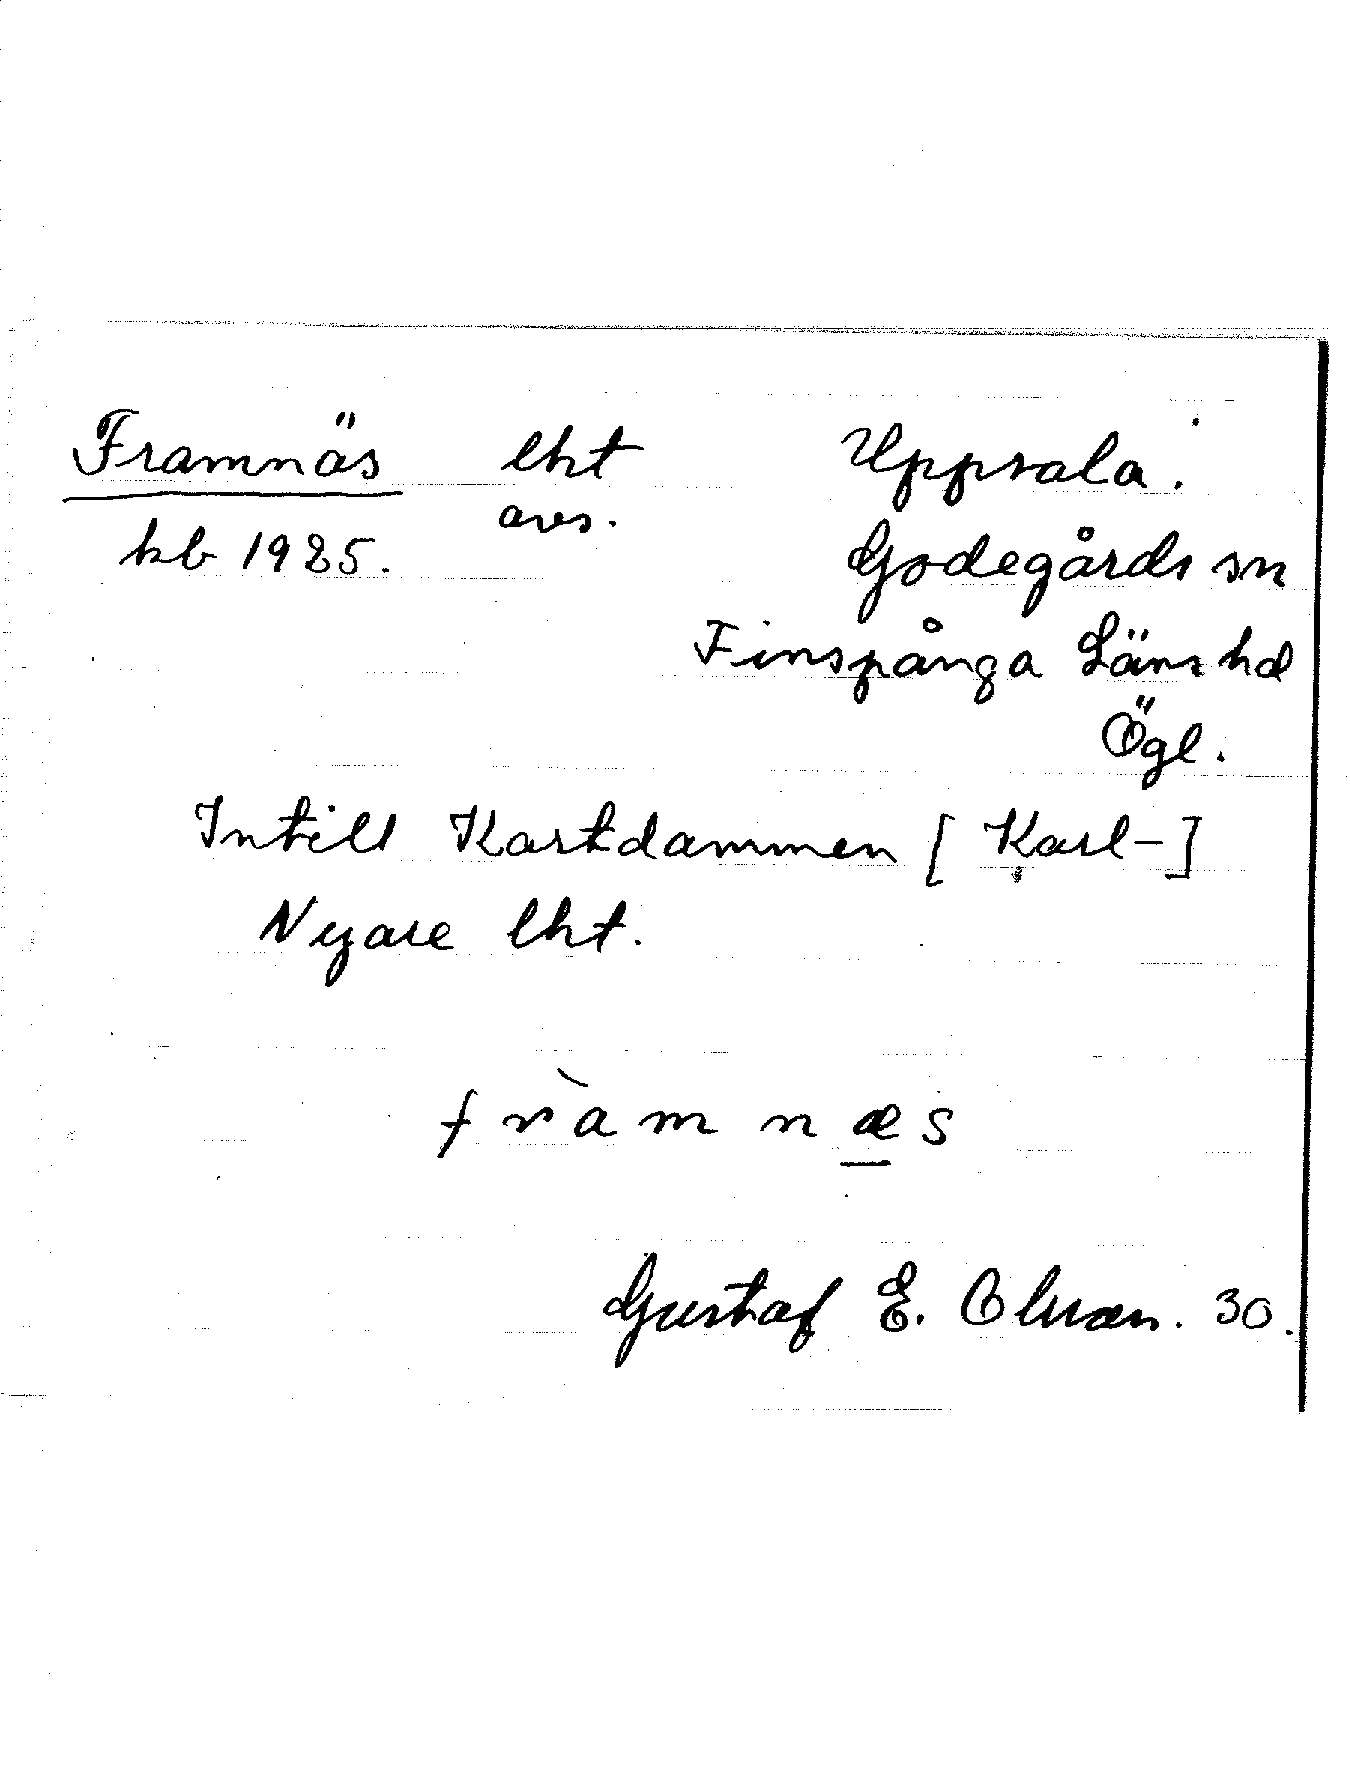 Framnäs lht Uppsala.
avs.
kb 1925. Godegårds sn
Finspånga Läns hd
Ögl.
Intill Kartdammen [ Karl- ]
Nyare lht.
fràmnæs
Gustaf E. Olsson. 30.